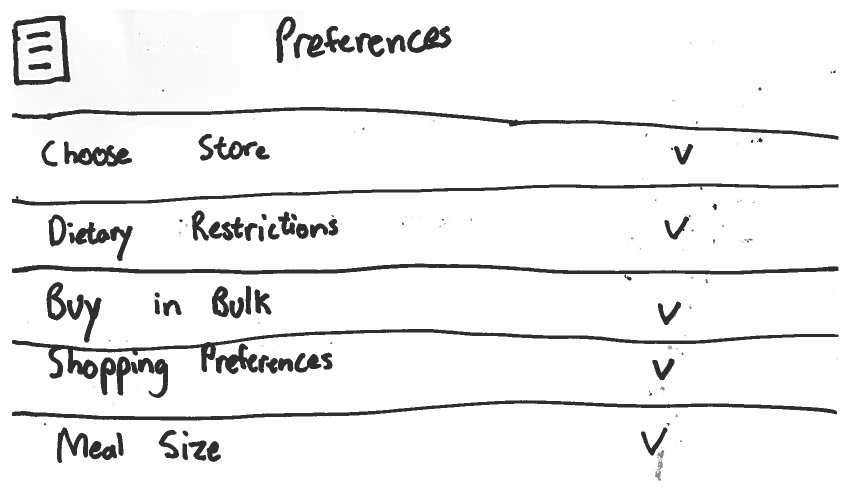 Preferences
Choose Store
Dietary Restrictions
Buy in Bulk
Shopping Preferences
Meal Size